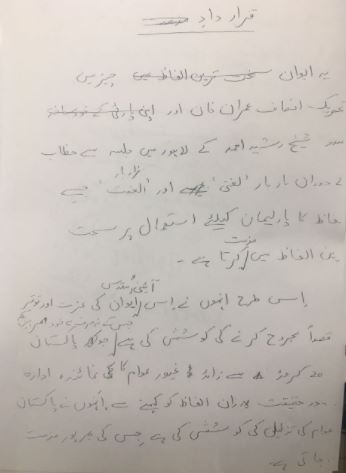 قرار داد
یہ ایوان سخت ترین الفاظ میں چیئرمین
تحریک انصاف عمران خان اور اپنی پارٹی کے
شیخ رشید احمد کے لاہور میں جلسہ سے خطاب
کے دوران بار بار 'لعنتی' اور 'لعنت' جیسے
الفاظ کا پارلیمان کیلئے استعمال پر سخت
ترین الفاظ میں مذمت کرتا ہے۔
اِس طرح انہوں نے اِس آئینی مقدس ایوان کی عزت اور توقیر
قصداً مجروح کرنے کی کوشش کی ہے جو کہ پاکستان
20 کروڑ سے زائد غیور عوام کا نمائندہ ادارہ
در حقیقت ان الفاظ کو کہنے سے اُنہوں نے پاکستان
عوام کی تذلیل کی کوشش کی ہے جس کی بھرپور مذمت
جاتی ہے۔